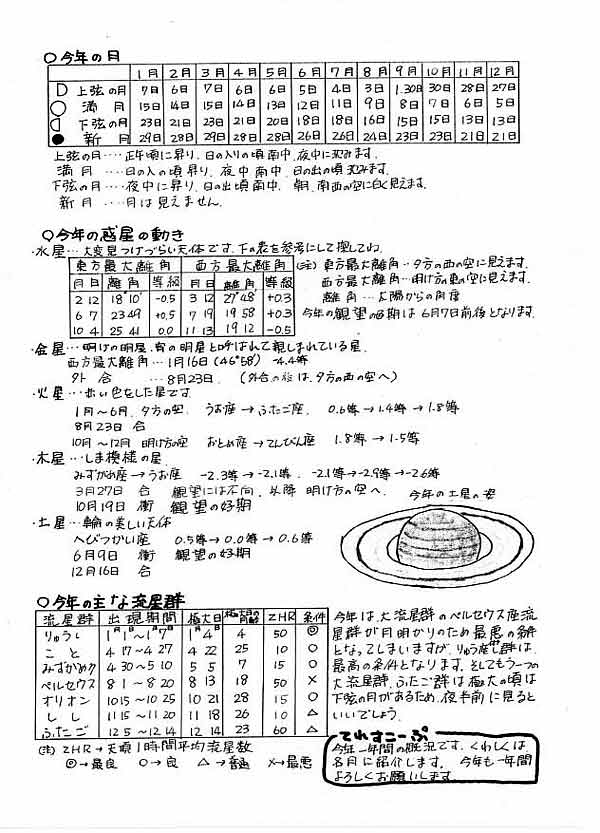 ○今年の月
1月 2月 3月 4月 5月 6月 7月 8月 9月 10月 11月 12月
上弦の月 7日 6日 7日 6日 6日 5日 4日 3日 1.30日 30日 28日 27日
満月 15日 14日 15日 14日 13日 12日 11日 9日 8日 7日 6日 5日
下弦の月 23日 21日 23日 21日 20日 18日 18日 16日 15日 15日 13日 13日
新月 29日 28日 29日 28日 28日 26日 26日 24日 23日 23日 21日 21日
上弦の月‥‥正午頃に昇り、日の入りの頃南中、夜中に沈みます。
満月‥‥日の入の頃昇り、夜中南中、日の出の頃沈みます。
下弦の月‥‥夜中に昇り、日の出頃南中、朝、南西の空に白く見えます。
新月‥‥月は見えません。
○今年の惑星の動き
・水星‥‥大変見つけづらい天体です。下の表を参考にして探してね。
東方最大離角 西方最大離角
月日 離角 等級 月日 離角 等級
2 12 18°10' -0.5 3 12 27°48' +0.3
6 7 23 49 +0.5 7 19 19 58 +0.3
10 4 25 41 0.0 11 13 19 12 -0.5
(注) 東方最大離角‥夕方の西の空に見えます。
西方最大離角‥明け方の東の空に見えます。
離角‥太陽からの角度
今年の観望の好期は6月7日前後となります。
・金星‥‥明けの明星、宵の明星と呼ばれて親しまれている星。
西方最大離角‥‥1月16日(46°58') -4.4等
外合‥‥8月23日. (外合の後は、夕方の西の空へ)
・火星‥‥赤い色をした星です
1月～6月、夕方の空 うお座→ふたご座、 0.6等→1.4等→1.8等
8月23日 合
10月～12月 明け方の空 おとめ座→てんびん座 1.8等→1.5等
・木星‥‥しま模様の星、
みずがめ座→うお座 -2.3等→-2.1等、 -2.1等→-2.9等→-2.6等
3月27日 合 観望には不向、以降 明け方の空へ。
10月19日 衝 観望の好期
・土星‥‥輪の美しい天体
へびつかい座 0.5等→0.0等→0.6等
6月9日 衝 観望の好期
12月16日 合
今年の土星の姿
○今年の主な流星群
流星群 出現期間 極大日 極大日の月齢 ZHR 条件
りゅうし 1月1日～1月7日 1月4日 4 50 ◎
こと 4 17～4 27 4 22 25 10 ○
みずがめη 4 30～5 10 5 5 7 15 ○
ペルセウス 8 1～8 20 8 13 18 50 ×
オリオン 10 15～10 25 10 21 28 15 ○
しし 11 15～11 20 11 18 26 10 △
ふたご 12 5～12 14 12 14 23 60 △
(注) ZHR→天頂1時間平均流星数
◎→最良 ○→良 △→普通 ×→最悪
今年は、大流星群のペルセウス座流
星群が月明かりのため最悪の条件
となってしまいますが、りゅう座群は、
最高の条件となります。そしてもう一つの
大流星群、ふたご群は極大の頃は
下弦の月があるため、夜半前に見ると
いいでしょう。
てれすこーぷ
今年一年間の概況です、くわしくは、
各月に紹介します。 今年も一年間
よろしくお願いします。